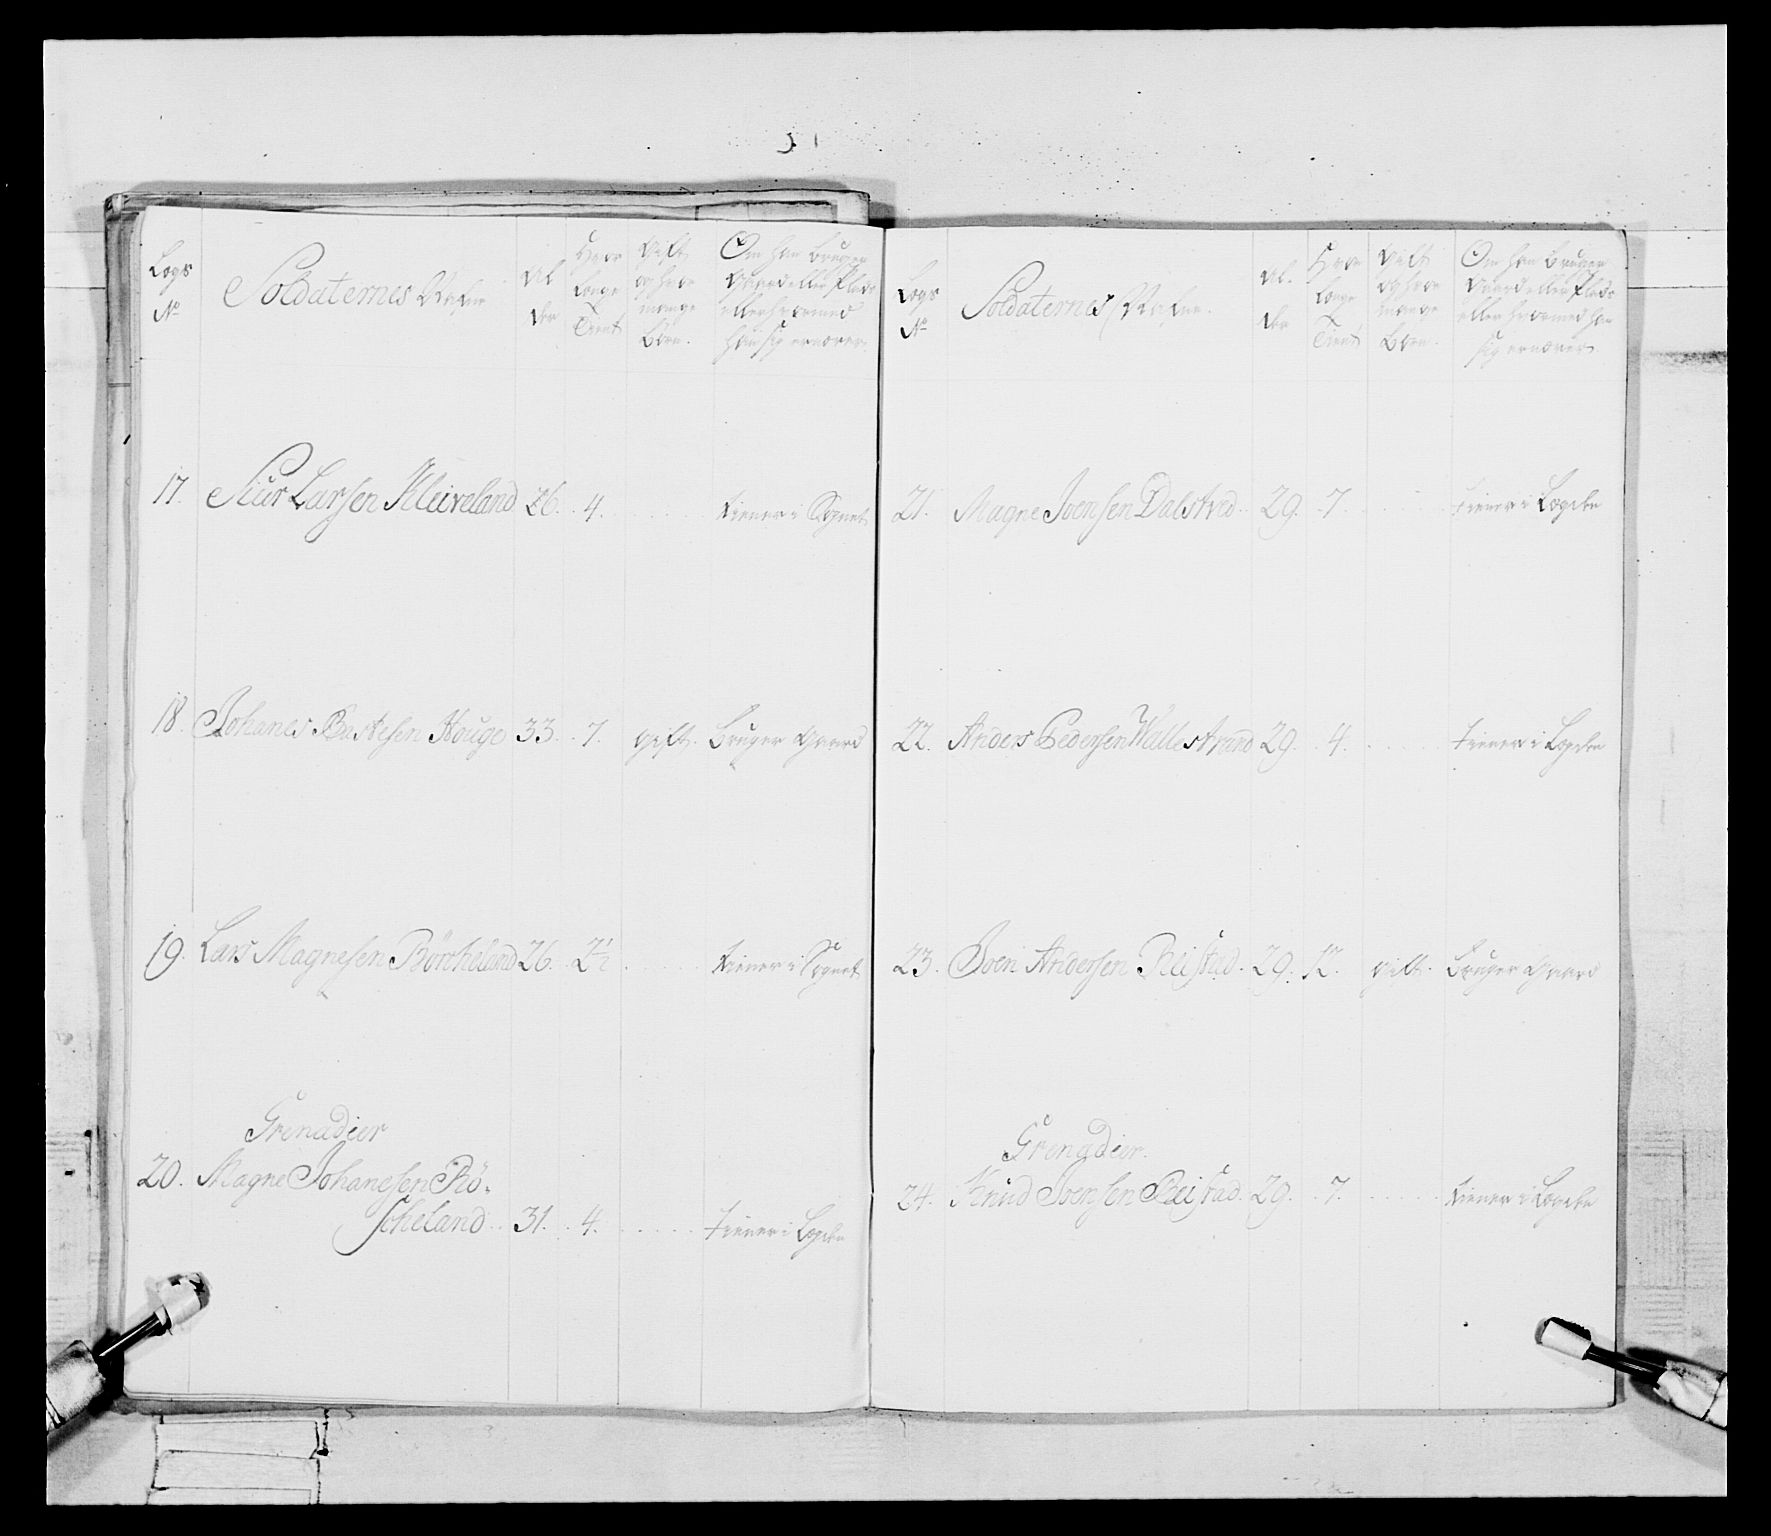 Logs
No
Soldaternes Nafne
Al
der
Hvor
Længe
Tient
Gift
og hvor
mange
Børn.
Om han bruger
Gaard eller Plads
eller hvormed
han sig ernærer
17. Siur Larsen Kleiveland 26. 4. tiener i Sognet
18. Johanes Bastesen Houge 33. 7. gift. Bruger Gaard
19. Lars Magnesen Börcheland 26. 2½ tiener i Sognet
Grenadier
20. Magne Johanesen Rö-
scheland 31. 4. tiener i Lægden
Logs
No
Soldaternes Nafne.
Al-
der
Hvor
Længe
Tient
Gift
og hvor
mange
Børn.
Om han bruger
Gaard eller Plads
eller hvormed han
sig ernærer
21. Magne Joensen Dalstved 29. 7. tiener i Lægden
22. Anders Pedersen Wallestrand 29. 4. tiener i Lægden
23. Joen Andersen Reistad. 29. 12. gift. Bruger Gaard
Grenadier.
24. Knud Joensen Reistad. 29. 7. tiener i Lægden